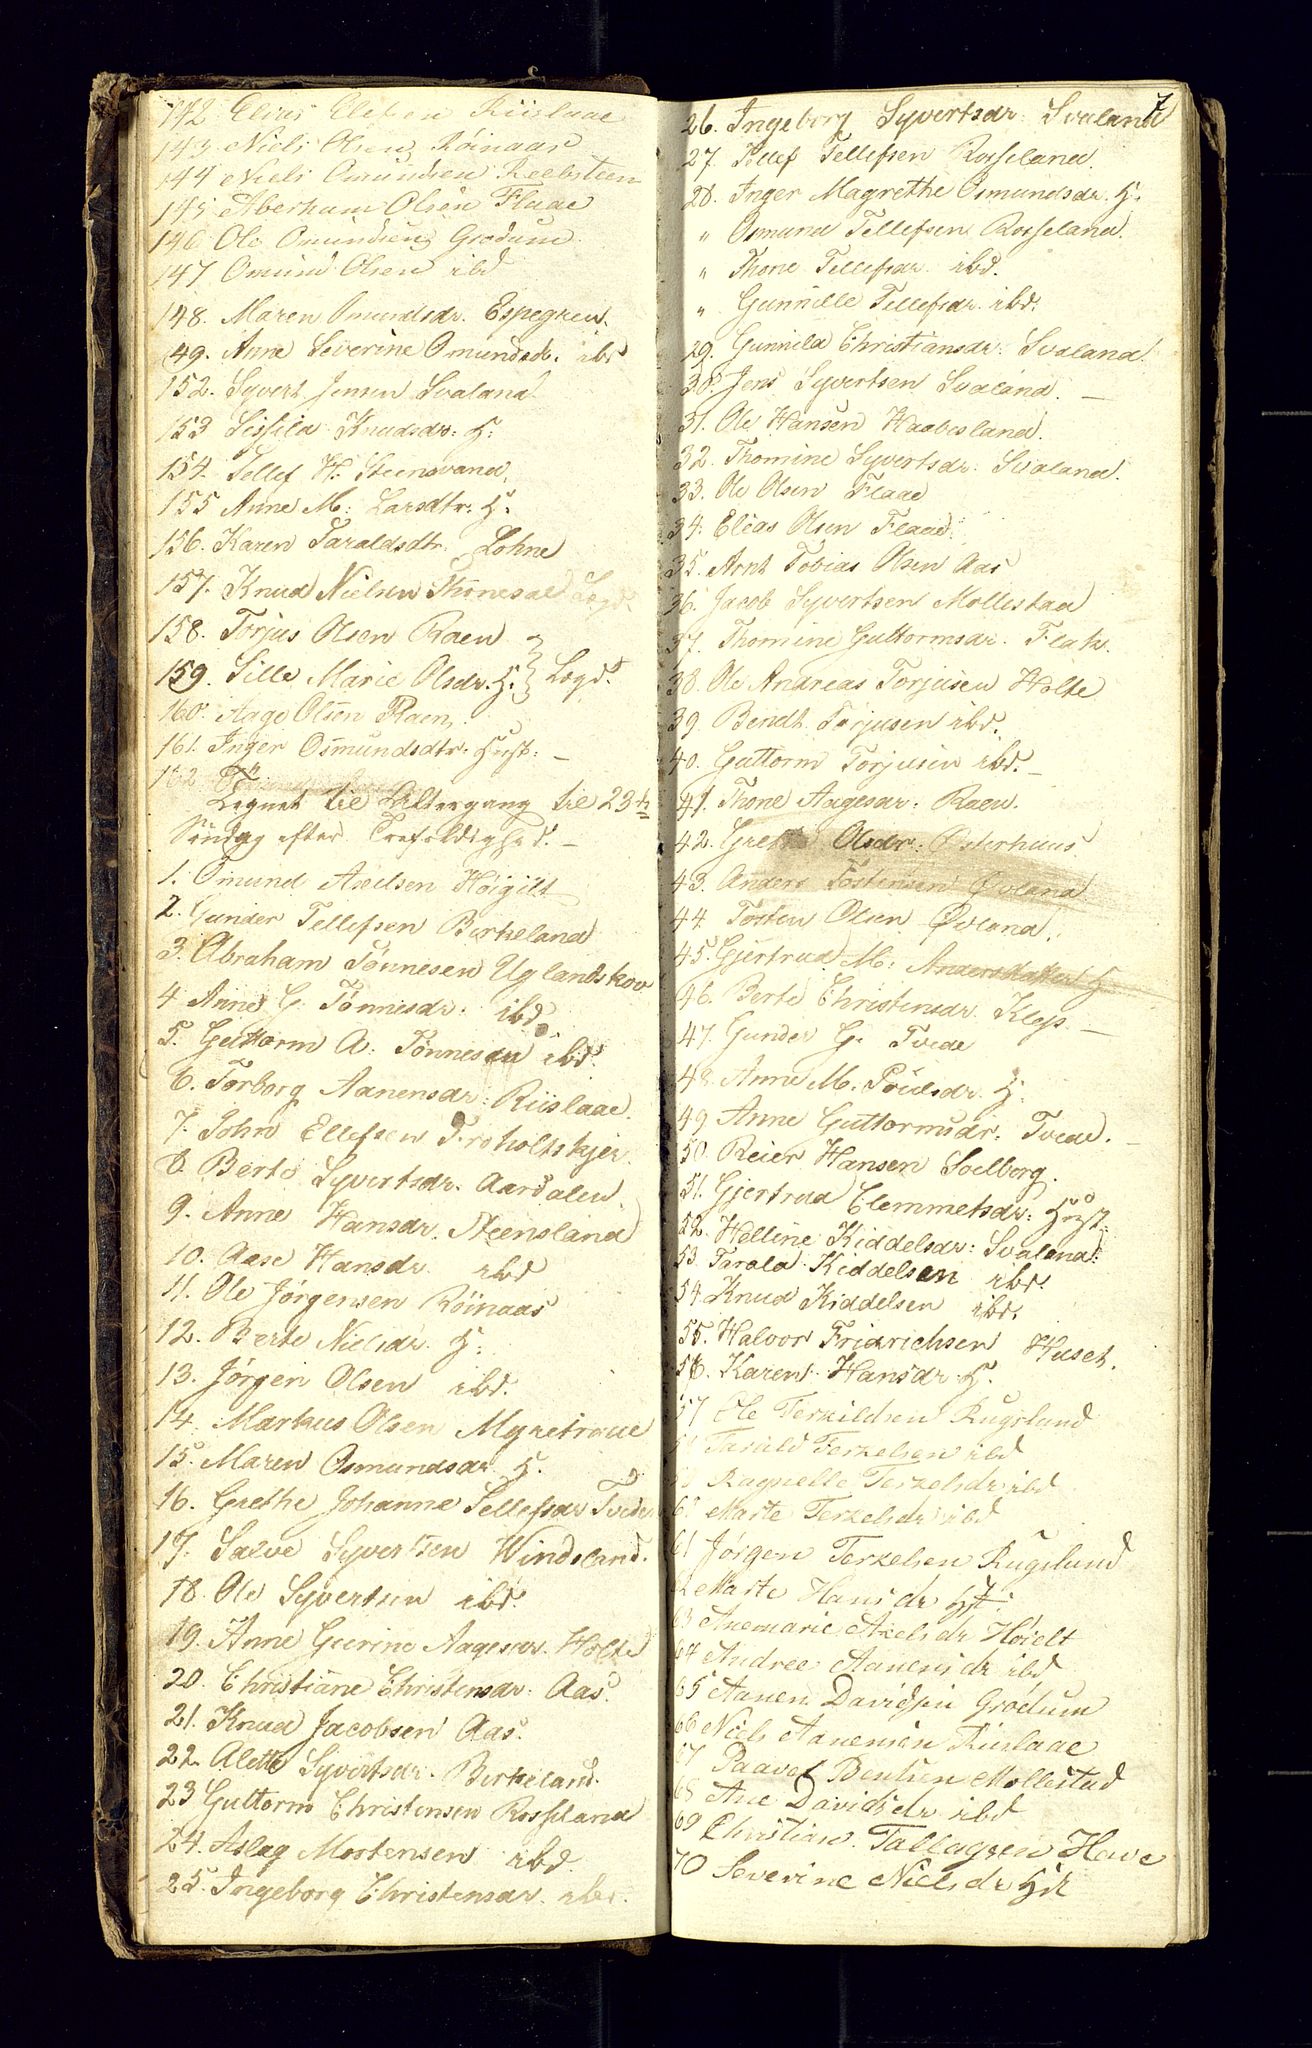 142 Elias Elefsen Riislaae
143 Niels Olsen Röinaas
144 Niels Omundsen Reebsteen
145 Aberham Olsen Flaae
146 Ole Omundsen Grödum
147 Omund Olsen ibd
148. Maren Omundsdr. Espegren.
149. Anne Severine Omundsdr. ibd
152. Syvert Jensen Svaland
153 Sissila Knudsdr: H:
154. Tellef H. Steensvand.
155 Anne M: Larsdtr: H:
156. Karen Taraldsdtr. Lohne
157. Knud Nielsen Thönesøl Lægd.
158. Torjus Olsen Raen
159. Sille Marie Olsdr. H. Lægd.
160. Aage Olsen Raen.
161. Inger Osmundsdtr. Hust: -
162
Tegnet til Altergang til 23de
Söndag efter Trefoldighed. -
1. Omund Axelsen Höigilt
2. Gunder Tellefsen Birkeland
3. Abraham Tönnesen Uglandskov
4. Anne G. Tönnesdr: ibd.
5. Guttorm A: Tönnesen ibd.
6. Torborg Aanensdr: Riislaae.
7. John Ellefsen Froholtskjer.
8. Berte Syvertsdr. Aardalen
9. Anne Hansdr. Steensland
10. Aase Hansdr. ibd
11. Ole Jørgensen Röinaas
12. Berte Nielsdr. H:
13. Jørgen Olsen ibd.
14. Markus Olsen Myretraae
15. Maren Osmundsdr H.
16. Grethe Johanne Tellefsdr Tvede
17. Salve Syvertsen Windsland.
18. Ole Syvertsen ibd.
19. Anne Gurine Aagesdr. Holte
20. Christiane Christensdr. Aas.
21. Knud Jacobsen Aas.
22. Alette Syvertsdr. Birkeland.
23 Guttorm Christensen Rosseland
24. Aslag Mortensen ibd.
25. Ingeborg Christensdr. ibd.
7
26. Ingeborg Syvertsdr. Svaland
27. Tellef Tellefsen Rosseland.
28. Inger Magrethe Osmundsdr. H.
" Osmund Tellefsen Rosseland.
" Thone Tellefsdr. ibd.
" Gunnille Tellefsdr. ibd.
29. Gunnild Christiansdr: Svaland.
30. Jens Syvertsen Svaland. -
31. Ole Hansen Haabesland.
32. Thomine Syvertsdr. Svaland.
33. Ole Olsen Flaae
34. Elias Olsen Flaae.
35. Arnt Tobias Olsen Aas
36. Jacob Syvertsen Mollestad
37. Thomine Guttormsdr. Flak.
38. Ole Andreas Torjusen Holte
39. Bendt Torjusen ibd.
40. Guttorm Torjusen ibd. -
41. Thone Aagesdr: Raen.
42. Grethe Olsdr: Osterhuus.
43. Anders Tostensen Øvland
44. Tosten Olsen Øvland.
45. Gjertrud M: Andersdatter H
46. Berte Christensdr. Klep. -
47. Gunder G. Tvede
48. Anne M. Poulsdr. H:
49. Anne Guttormsdr. Tvede. -
50. Reier Hansen Solborg.
51. Gjertrud Clemmetsdr: Hust:
52. Helline Kiddelsdr: Svaland:
53. Tarald Kiddelsen ibd.
54. Knud Kiddelsen ibd.
55. Halvor Fridrichsen Huset.
56. Karen Hansdr H.
57 Ole Terkildsen Rugslund
58 Tarald Terkelsen ibd
59 Ragnelle Terkelsdr ibd
60 Marte Terkelsdr ibd
61 Jörgen Terkelsen Rugslund
62 Marte Hansdr Hst.
63 Anemarie Axelsdr Höielt
64 Andree Aanensdr ibd
65 Aanen Davidsen Grödum
66 Niels Aanensen Riislaae
67 Paavel Bentsen Mollestad
68 Ane Davidsdr ibd
69 Christian Tallagsen Have
70 Severine Nielsdr Hst